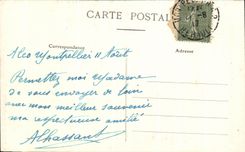 CARTE POSTALE
Correspondance
Adresse
Alco Montpellier 11 Août
Permettez moi Madame
de vous envoyer de loin
avec mon meilleur souvenir
ma respectueuse amitié